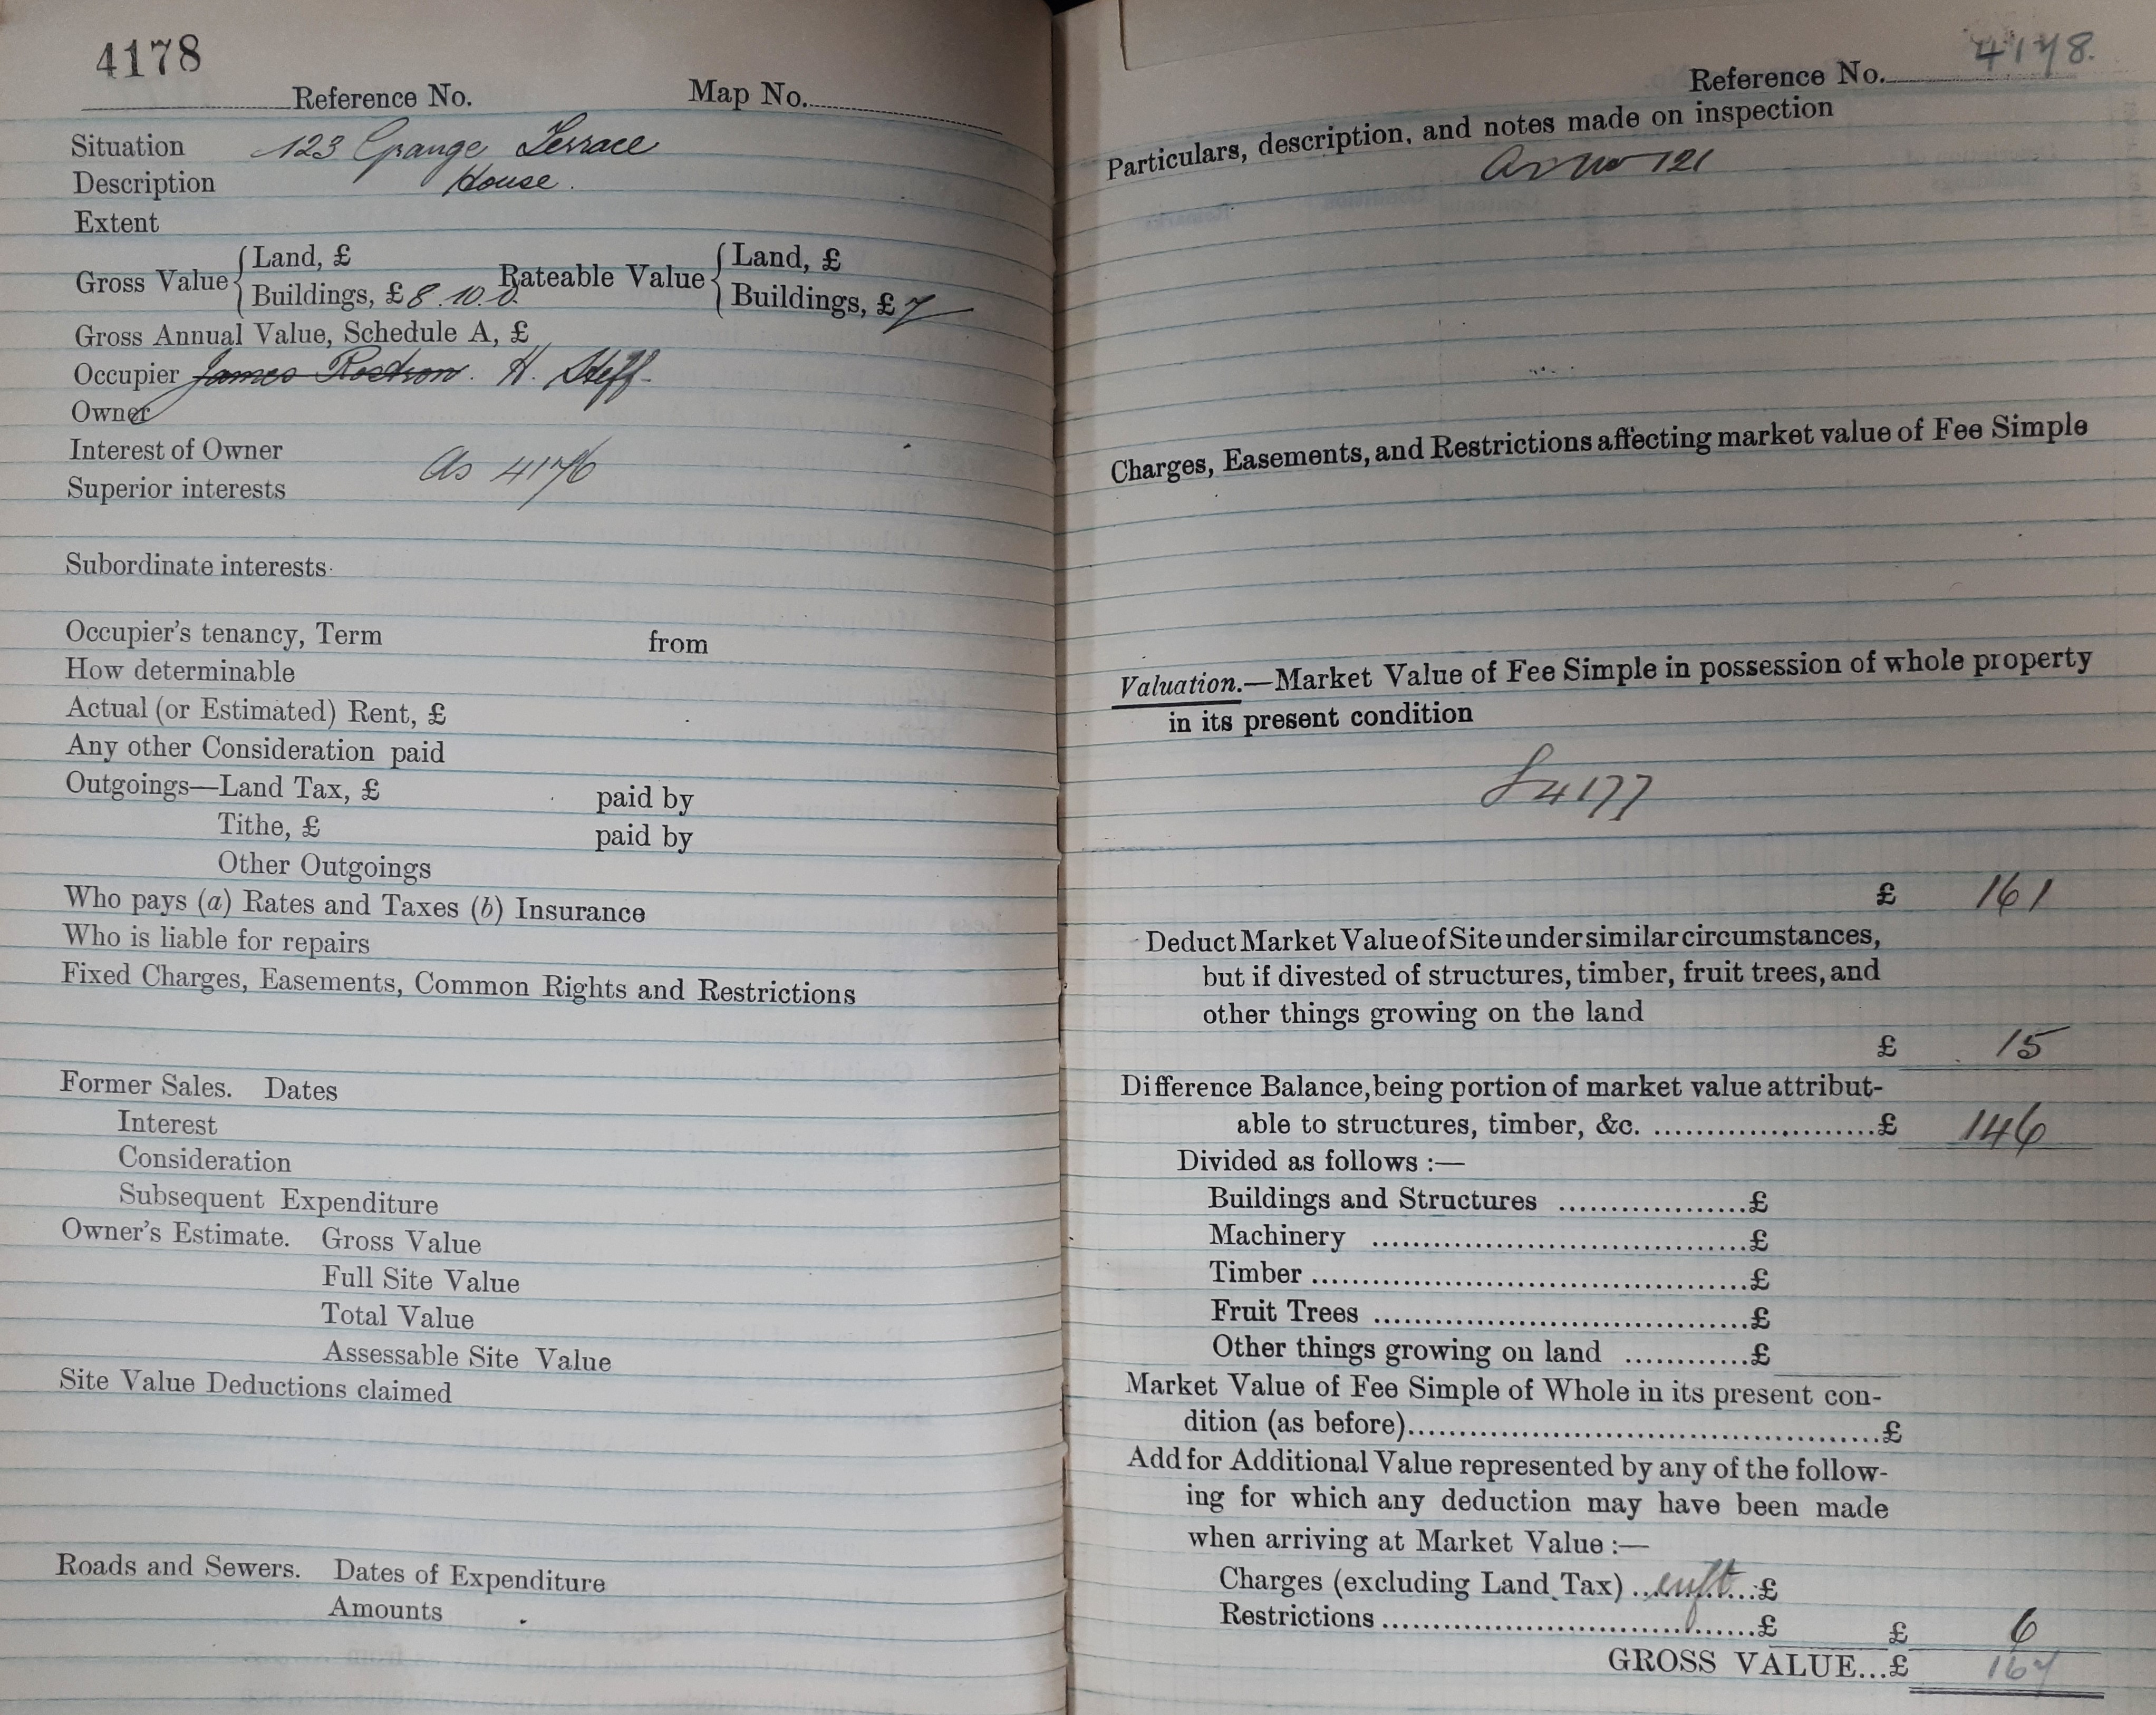 4178
Reference No. Map No.
Situation 123 Grange Terrace
Description House.
Extent
Gross Value { Land, £ Rateable Value { Land, £
Buildings, £ 8.10.0. Buildings, £ 7
Gross Annual Value, Schedule A, £
Occupier James Rostron. H. Steff
Owner
Interest of Owner
As 4176
Superior interests
Subordinate interests
Occupier's tenancy, Term from
How determinable
Actual (or Estimated) Rent, £
Any other Consideration paid
Outgoings—Land Tax, £ paid by
Tithe, £ paid by
Other Outgoings
Who pays (a) Rates and Taxes (b) Insurance
Who is liable for repairs
Fixed Charges, Easements, Common Rights and Restrictions
Former Sales. Dates
Interest
Consideration
Subsequent Expenditure
Owner's Estimate. Gross Value
Full Site Value
Total Value
Assessable Site Value
Site Value Deductions claimed
Roads and Sewers. Dates of Expenditure
Amounts
Reference No. 4178.
Particulars, description, and notes made on inspection
As No 121
Charges, Easements, and Restrictions affecting market value of Fee Simple
Valuation.—Market Value of Fee Simple in possession of whole property
in its present condition
4177
£ 161
Deduct Market Value of Site under similar circumstances,
but if divested of structures, timber, fruit trees, and
other things growing on the land
£ 15
Difference Balance, being portion of market value attribut-
able to structures, timber, &c. ......................£ 146
Divided as follows :—
Buildings and Structures ..................£
Machinery ....................................£
Timber ..........................................£
Fruit Trees ....................................£
Other things growing on land ............£
Market Value of Fee Simple of Whole in its present con-
dition (as before)..............................................£
Add for Additional Value represented by any of the follow-
ing for which any deduction may have been made
when arriving at Market Value :—
Charges (excluding Land Tax) ............£
Restrictions ....................................£ £ 6
GROSS VALUE...£ 167